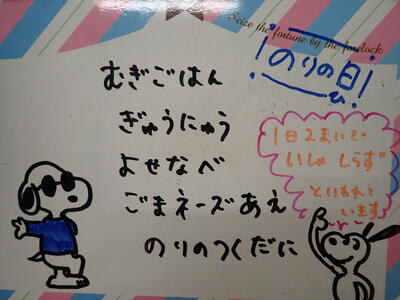 Seize the fortune by the forelock
!のりの日!
むぎごはん
ぎゅうにゅう
よせなべ
ごまネーズあえ
のりのつくだに
1日2まいで
いしゃしらず
といわれて
います